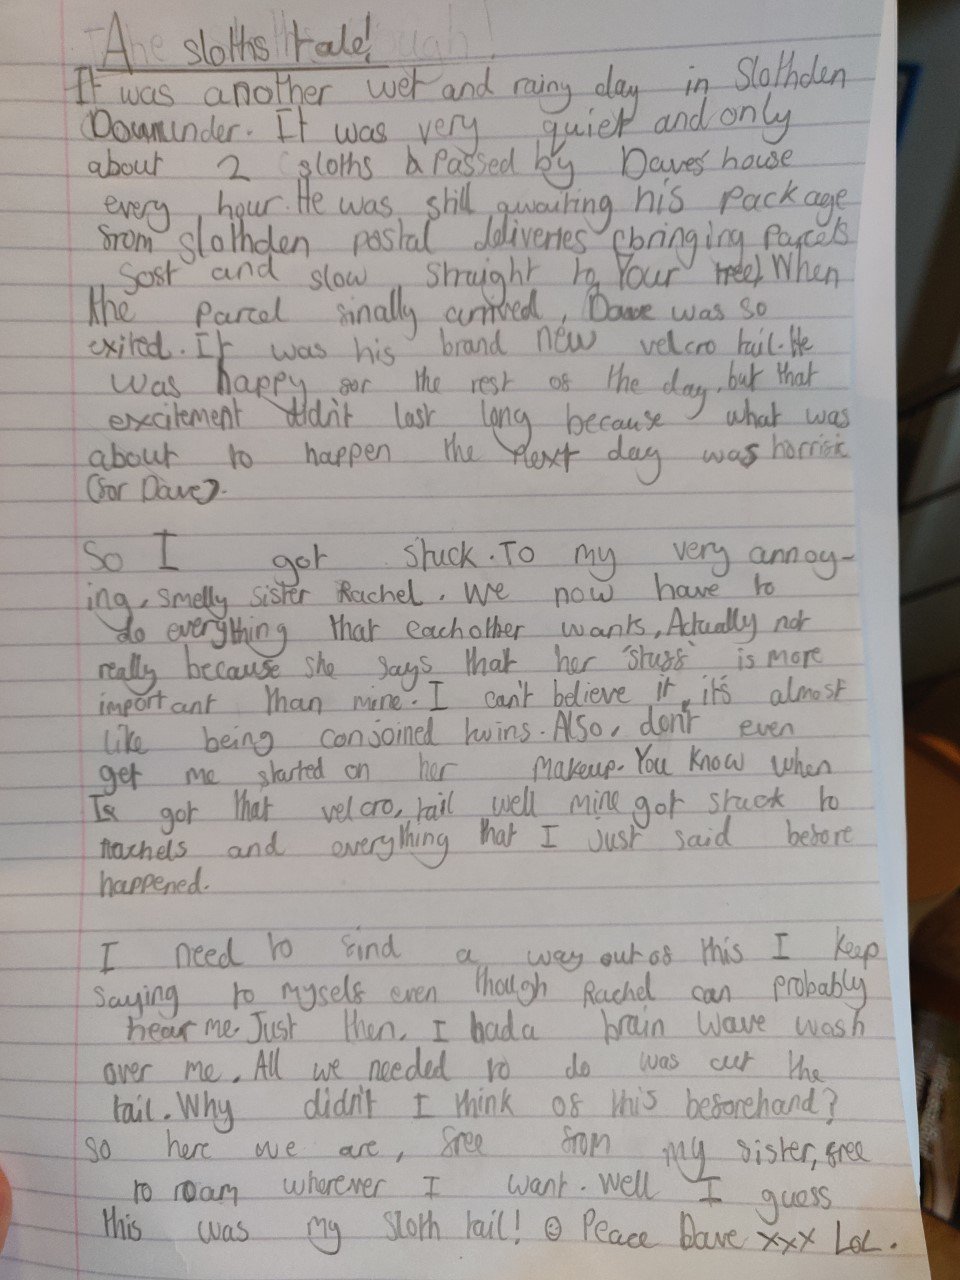 A sloths tale!
It was another wet and rainy day in Slothden
Downunder. It was very quiet and only
about 2 sloths passed by Daves house
every hour. He was still awaiting his package
from slothden postal deliveries (bringing parcels
fost and slow straight to Your tree). When
the parcel finally arrived, Dave was so
exited. It was his brand new velcro tail. He
was happy for the rest of the day, but that
excitement didn't last long because what was
about to happen the next day was horrific
(for Dave).
So I got stuck. To my very annoy-
ing, smelly sister Rachel. We now have to
do everything that eachother wants, Actually not
really because she says that her "stuff" is more
important than mine. I can't believe it, it's almost
like being conjoined twins. Also, don't even
get me started on her makeup. You know when
I got that velcro, tail well mine got stuck to
Rachels and everything that I just said before
happened.
I need to find a way out of this I keep
saying to myself even though Rachel can probably
hear me. Just then, I had a brain wave wash
over me. All we needed to do was cut the
tail. Why didn't I think of this beforehand?
So here we are, free from my sister, free
to roam wherever I want. Well I guess
this was my sloth tail! ☺ Peace Dave xxx LOL.